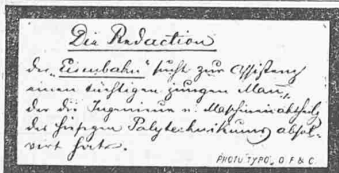 Die Redaction
der „Eisenbahn“ sucht zur Assistenz
einen tüchtigen jungen Mann,
der die Ingenieur- u. Maschinenabtheilg
des hiesigen Polytechnikums absol-
virt hat.
PHOTO "TYPO" O F & C.